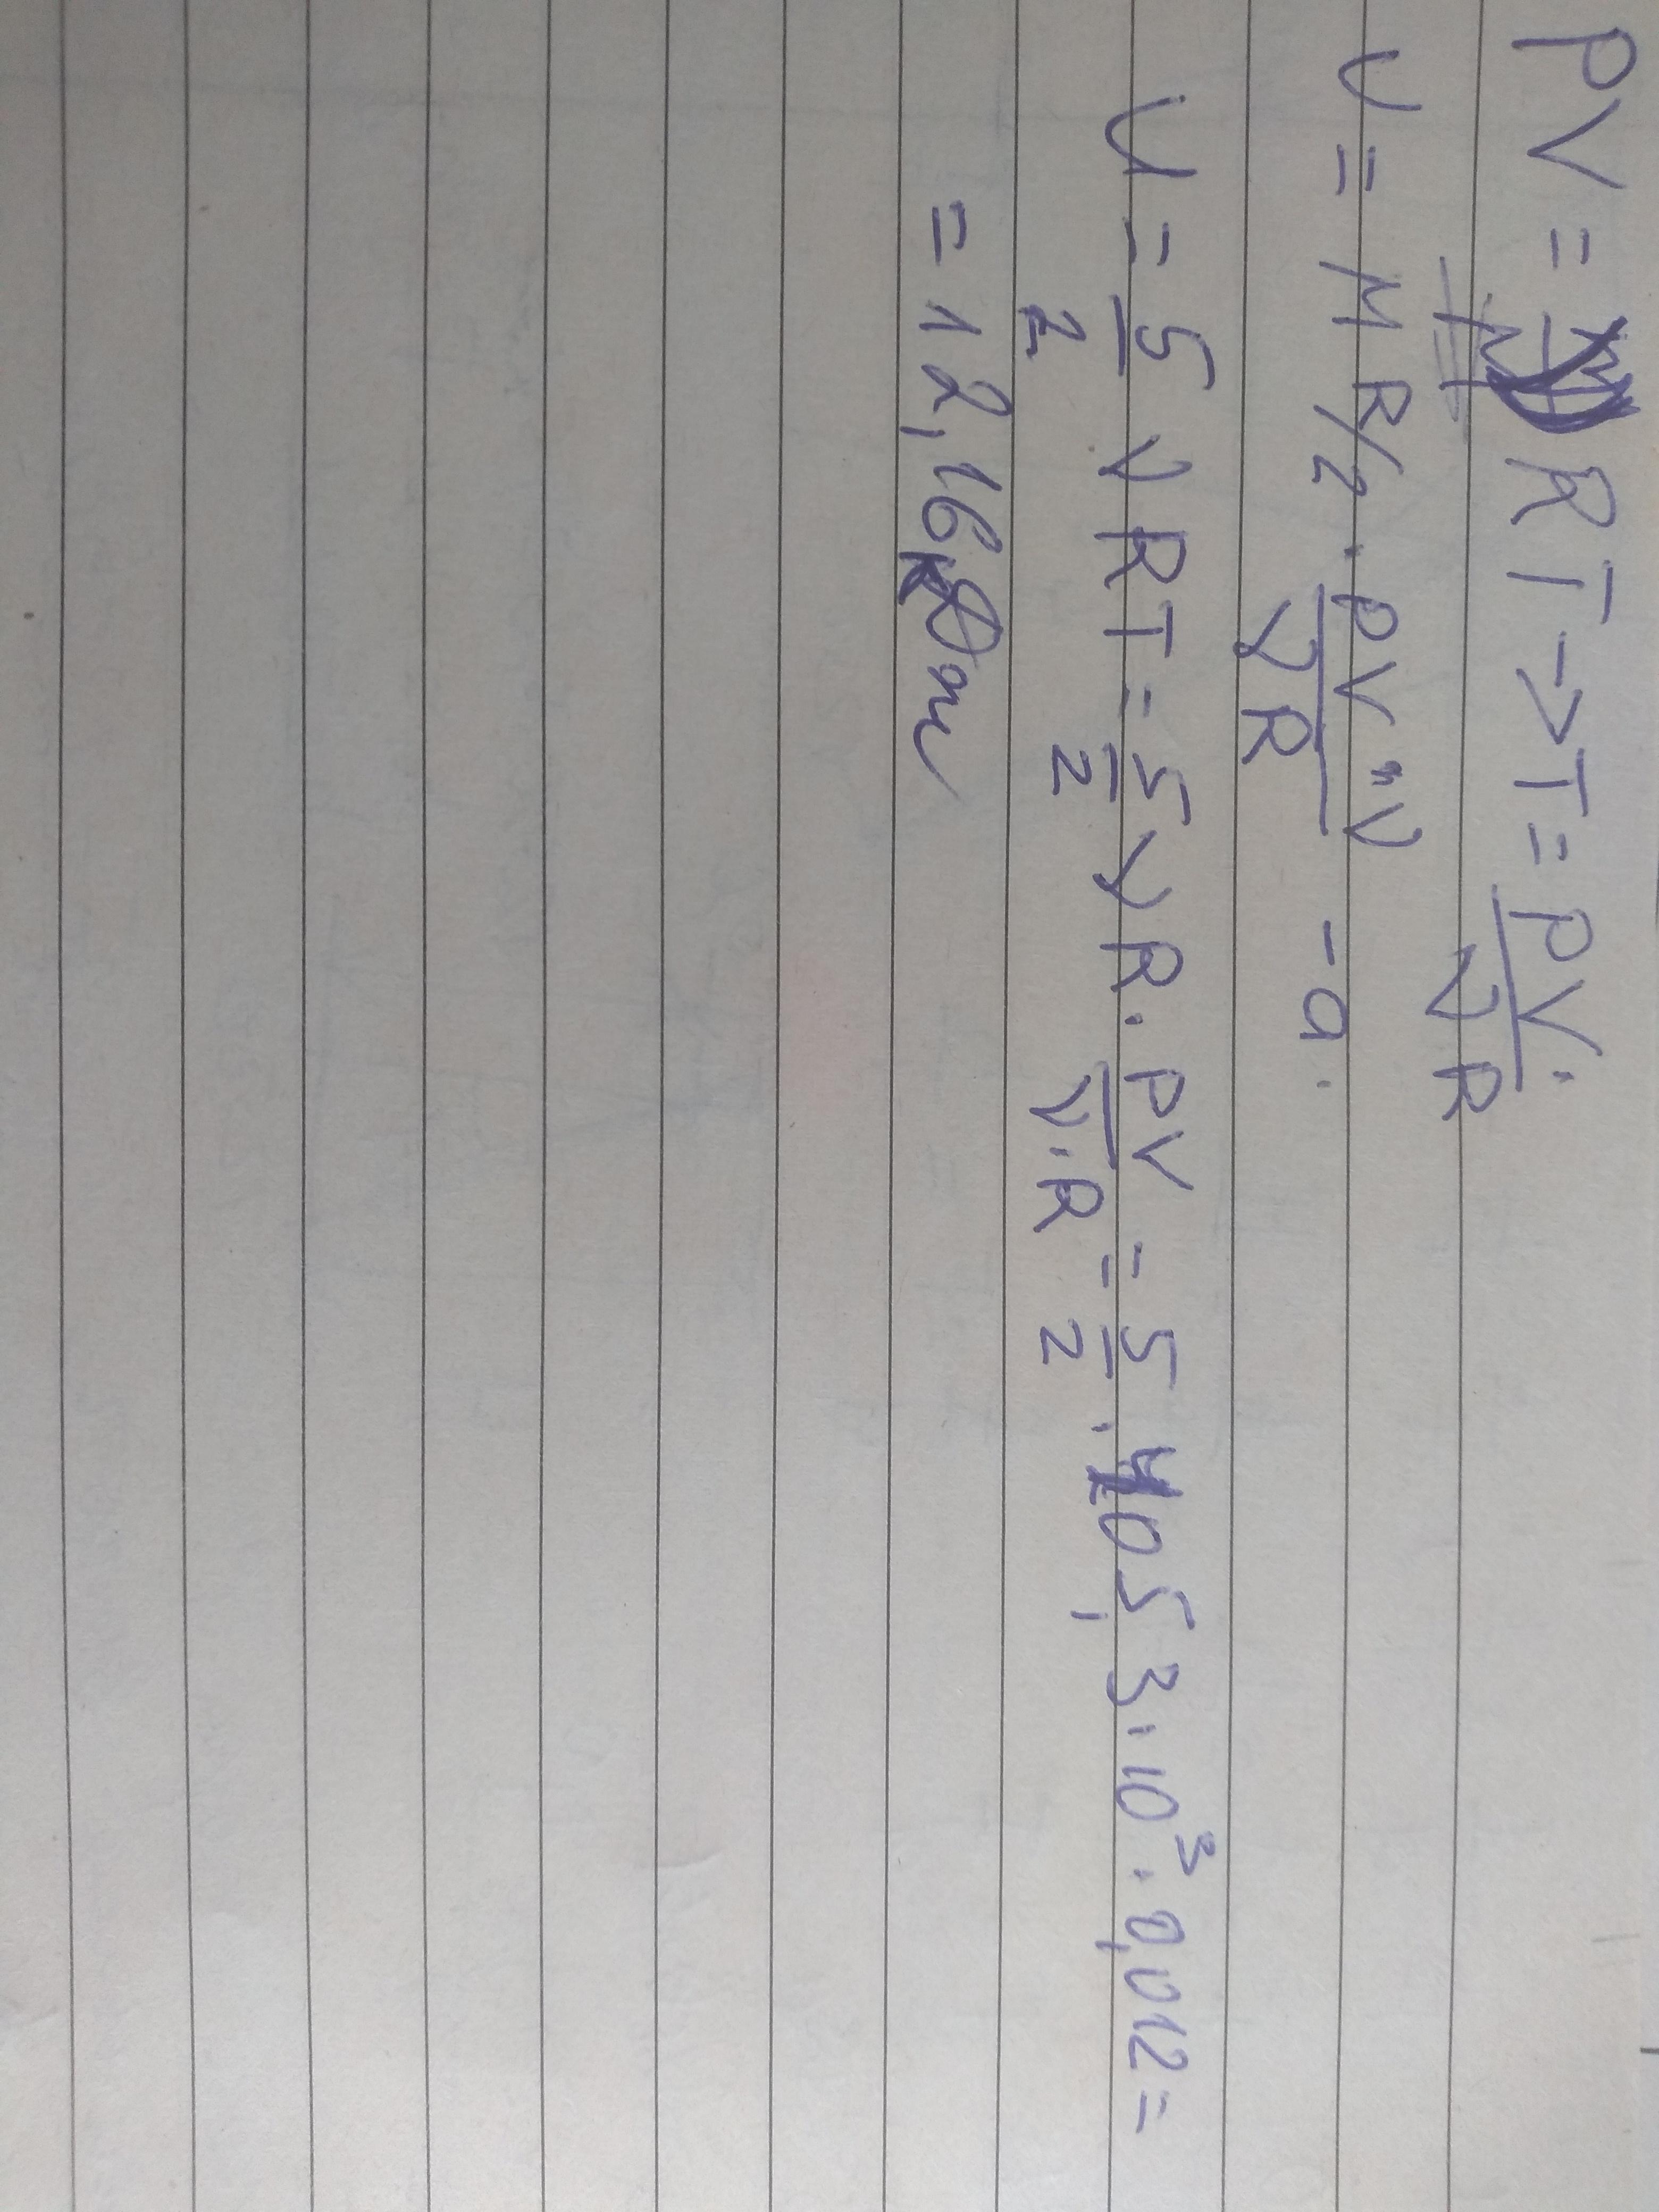 PV = m/μ RT -> T = PV/νR.
U = MR/2 · PV"ν/νR - a.
U = 5/2 νRT = 5/2 νR · PV/ν·R = 5/2 · 405,3 · 10³ · 0,012 =
= 12,16 кДж